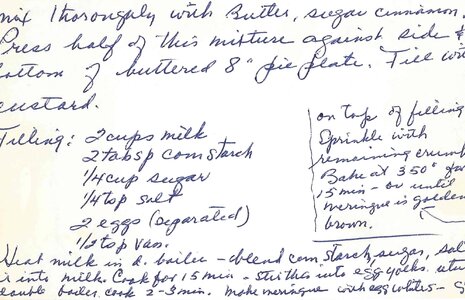 mix thoroughly with Butter, sugar cinnamon.
Press half of this mixture against side &
bottom of buttered 8" pie plate. Fill with
custard.
Filling: 2 cups milk
2 tabsp corn starch
1/4 cup sugar
1/4 tsp salt
2 eggs (separated)
1/2 tsp van.
on top of filling
Sprinkle with
remaining crumbs
Bake at 350° for
15 min - or until
meringue is golden
brown.
Heat milk in d. boiler - blend corn starch, sugar, sal
ir into milk. Cook for 15 min - stir this into egg yolks.
double boiler, cook 2-3 min. make meringue with egg whites -